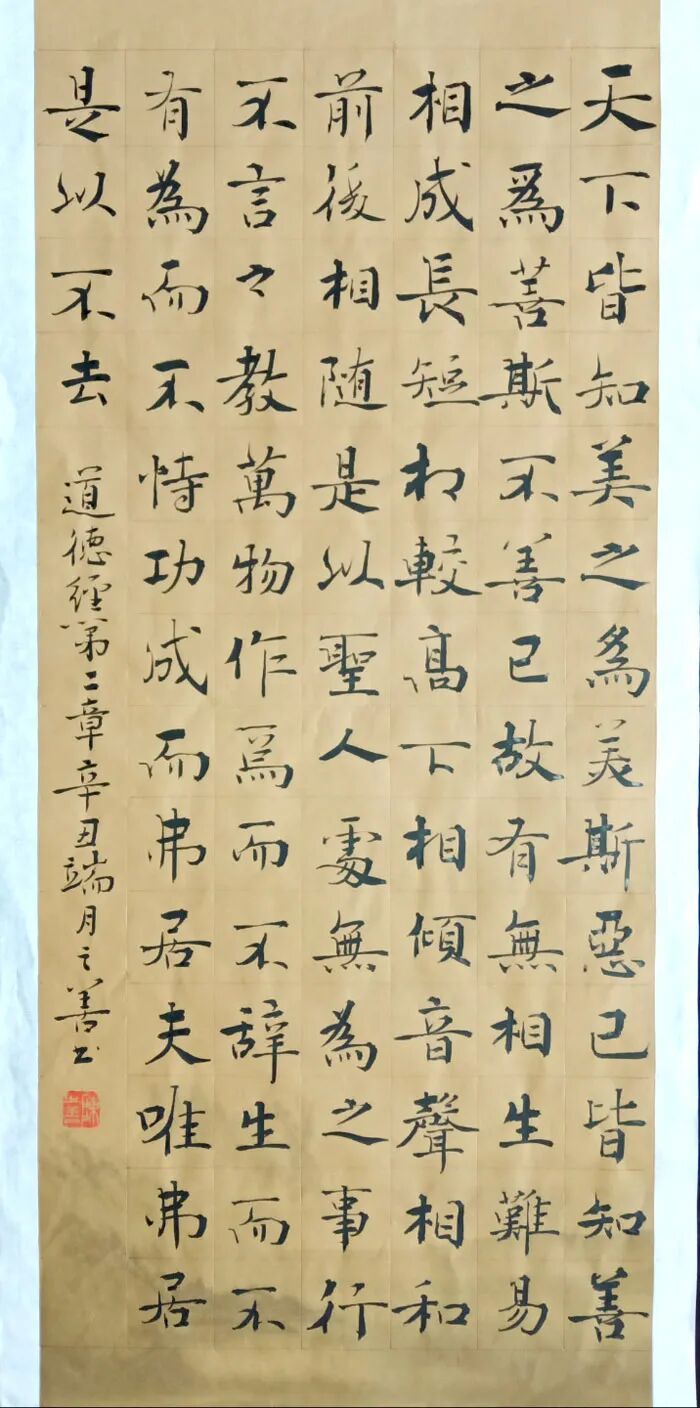 天下皆知美之為美斯惡已皆知善
之爲善斯不善已故有無相生難易
相成長短相較高下相傾音聲相和
前後相随是以聖人處無為之事行
不言之教萬物作焉而不辭生而不
有為而不恃功成而弗居夫唯弗居
是以不去
道德經第二章辛丑端月之善书